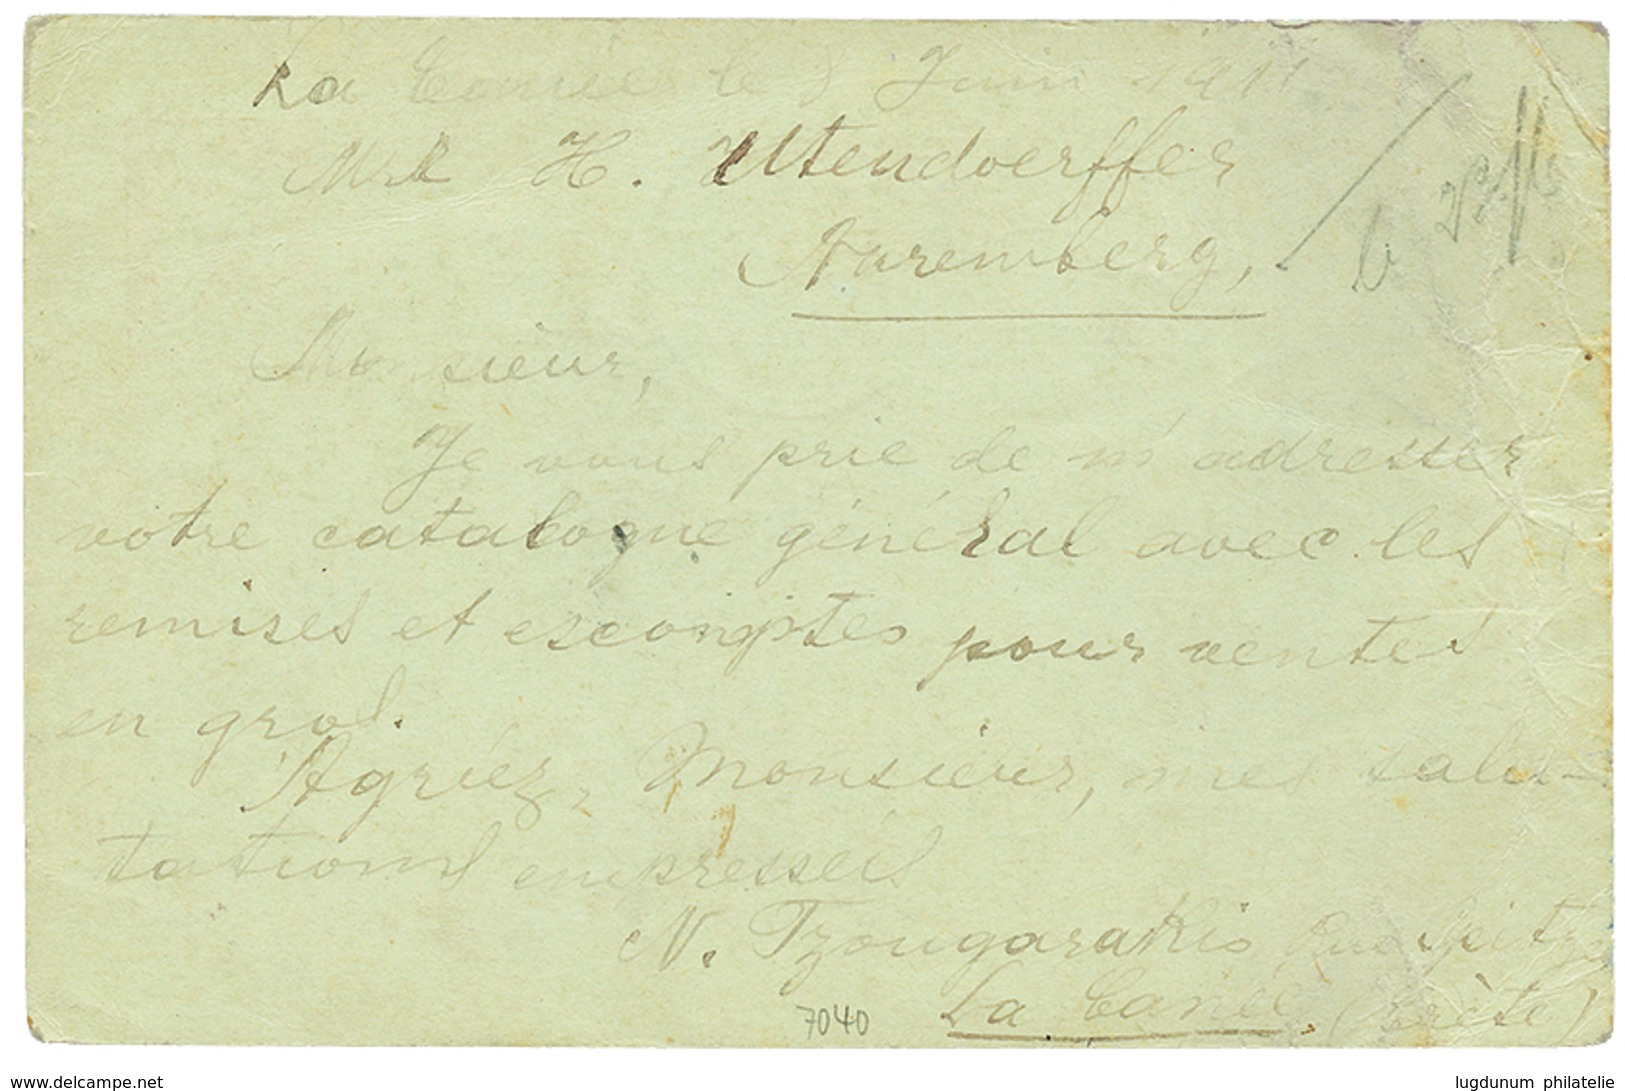 La Canée le 8 Juin 1911
H. Uttendoerffer
Nuremberg,
Monsieur,
Je vous prie de m'adresser
votre catalogue général avec les
remises et escomptes pour ventes
en gros.
Agréez, Monsieur, mes salu-
tations empressées
N. Tzougarakis Rue
La Canée, (Crète)
7040
www.delcampe.net
lugdunum philatelie